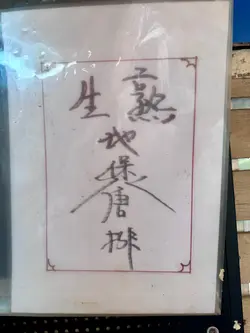 生熟
地
煲
唐
排